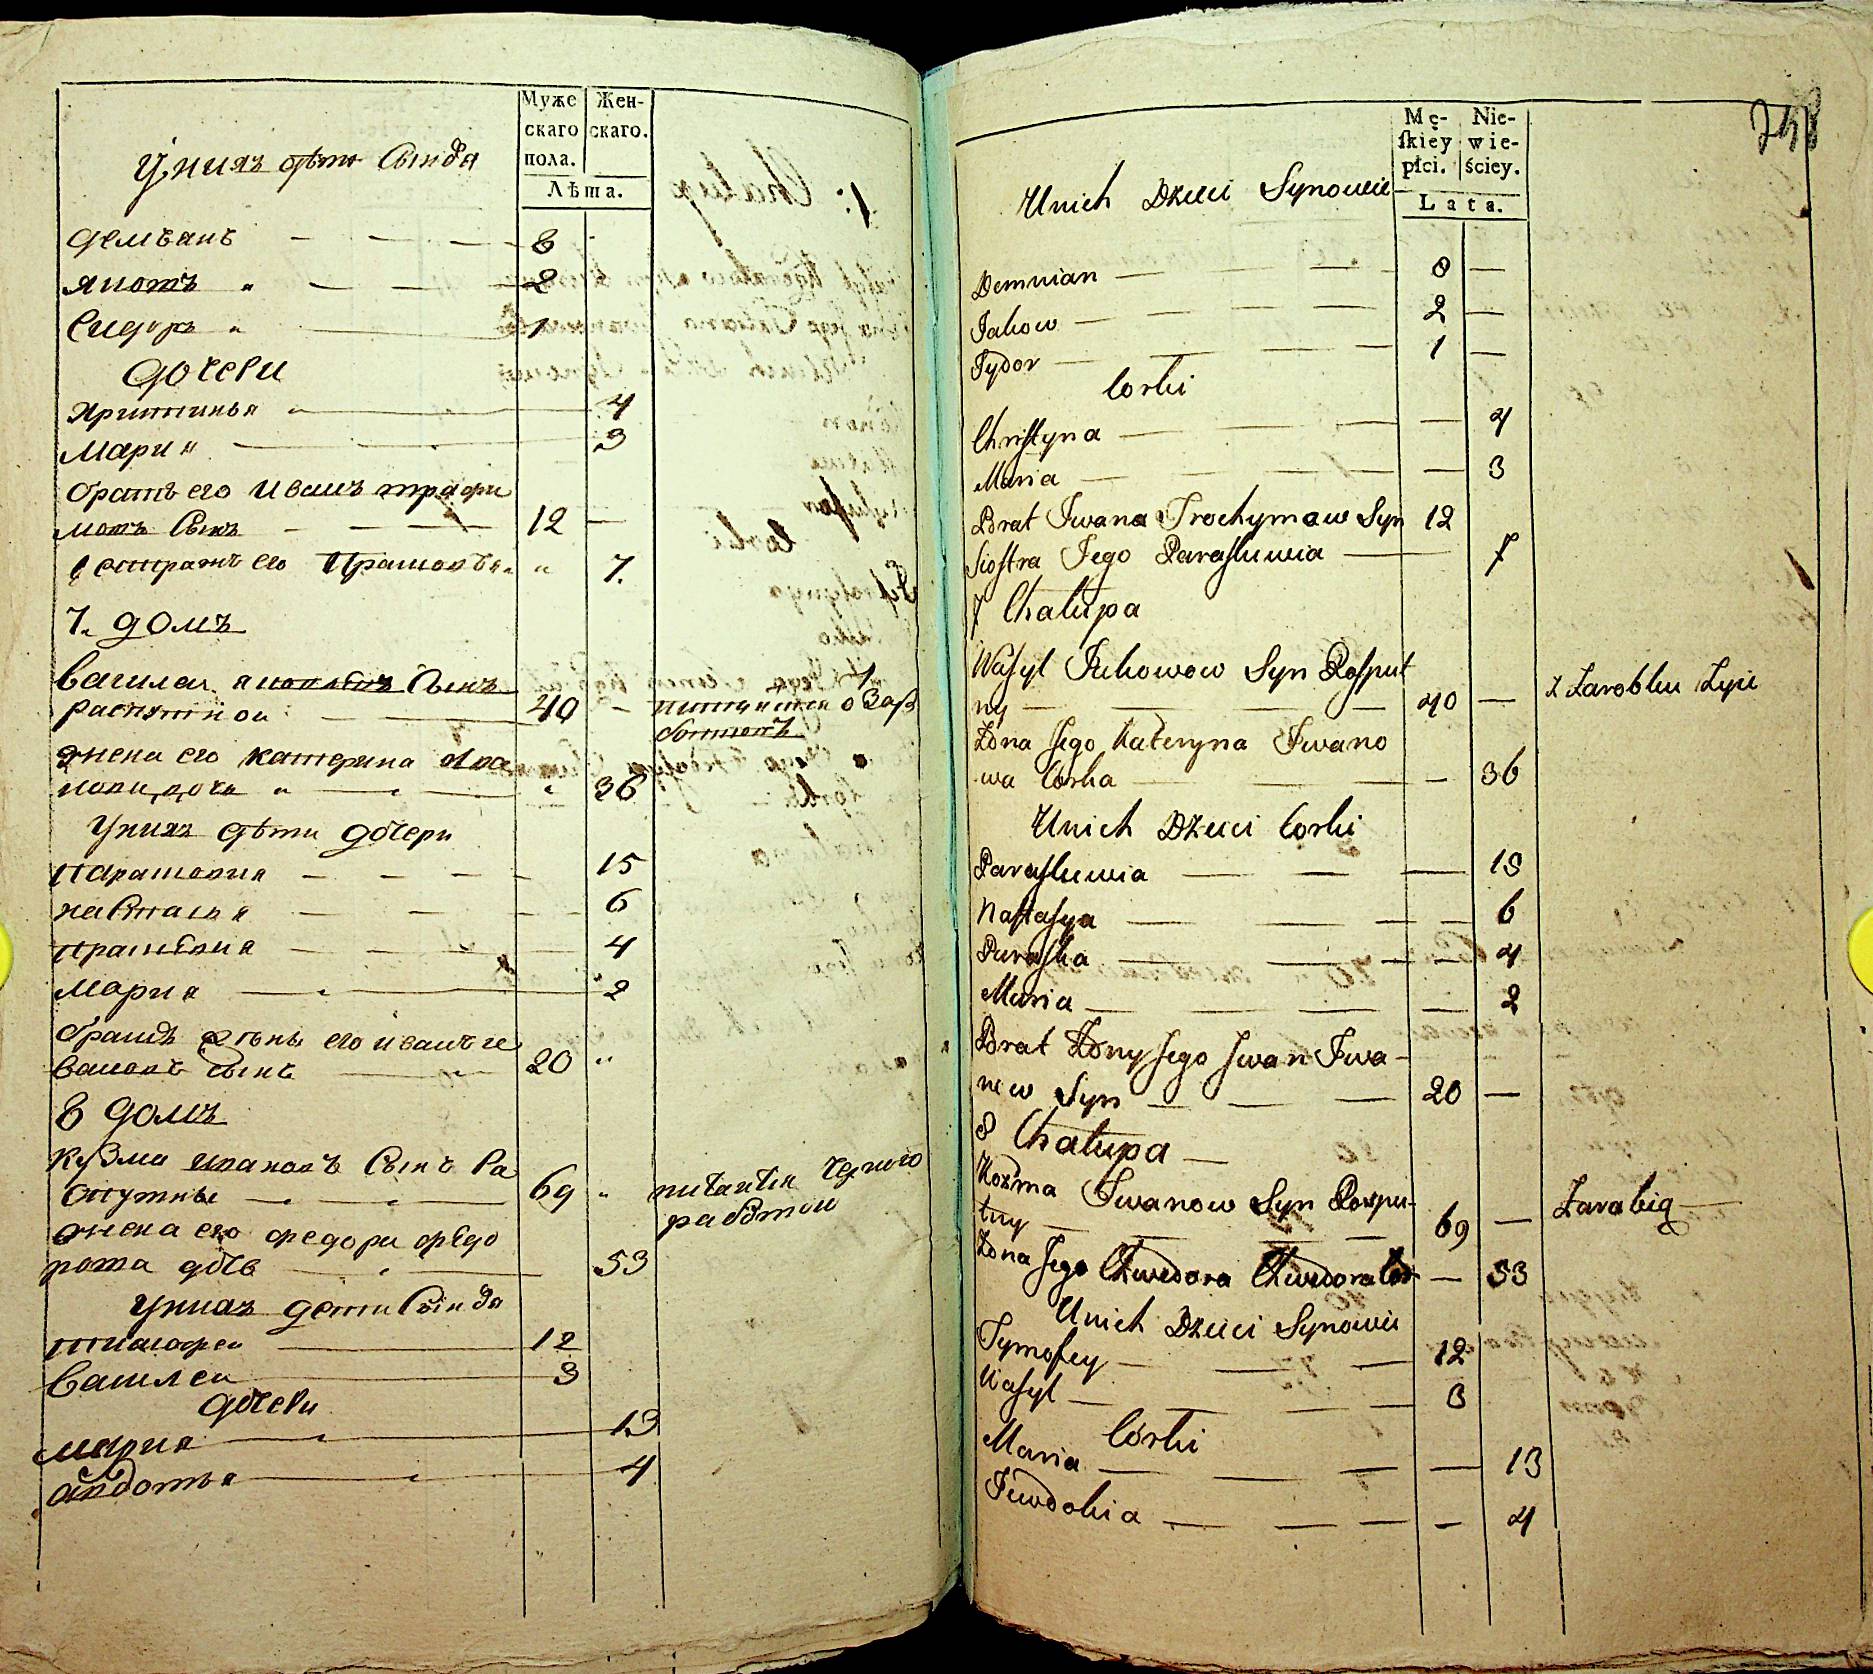 Муже
скаго
пола.
Жен-
скаго.
Лѣта.
Унихъ дѣти Сынвя
демьянъ 8
яковъ 2
Сидоръ 1
дочери
христинья 4
Мария 3
братъ его Иванъ трафи
мовъ Сынъ 12
его 7.
7. домъ
Василеи яковлевъ Сынъ
распутнои 40
жена его катерина ива
нова доча 36
Унихъ дѣти дочери
парасковия 15
настасья 6
4
Мария 2
братъ жены его иванъ и
вановъ Сынъ 20
8 домъ
кузма ивановъ Сынъ Ра
спутны 69
питается чорною
работою
жена его федора федо
рова дочь 53
Унихъ дети Сынвя
тимофеи 12
Василеи 3
дочери
мария 13
авдотья 4
Mę-
ſkiey
płci.
Nie-
wie-
ściey.
Lata.
Unich Dzieci Synowie
Demnian 8
Jakow 2
Sydor 1
Corki
Chrystyna 4
Maria 3
Brat Iwana Trochymow Syn 12
Siostra Jego Paraskiewia 7
7 Chalupa
Wasyl Jakowow Syn Rasput
ny 40 z Zarobku Zyie
Zona Jego Kateryna Iwano
wa Corka 36
Unich Dzieci Corki
Paraskiewia 15
Nastasya 6
Paraska 4
Maria 2
Brat Zony Jego Iwan Iwa-
now Syn 20
8 Chalupa
Kozma Iwanow Syn Raspu-
tny 69 Zarabia
Zona Jego Chwedora Chwedora Cor 53
Unich Dzieci Synowie
Tymofey 12
Wasyl 3
Córki
Maria 13
Iewdokia 4